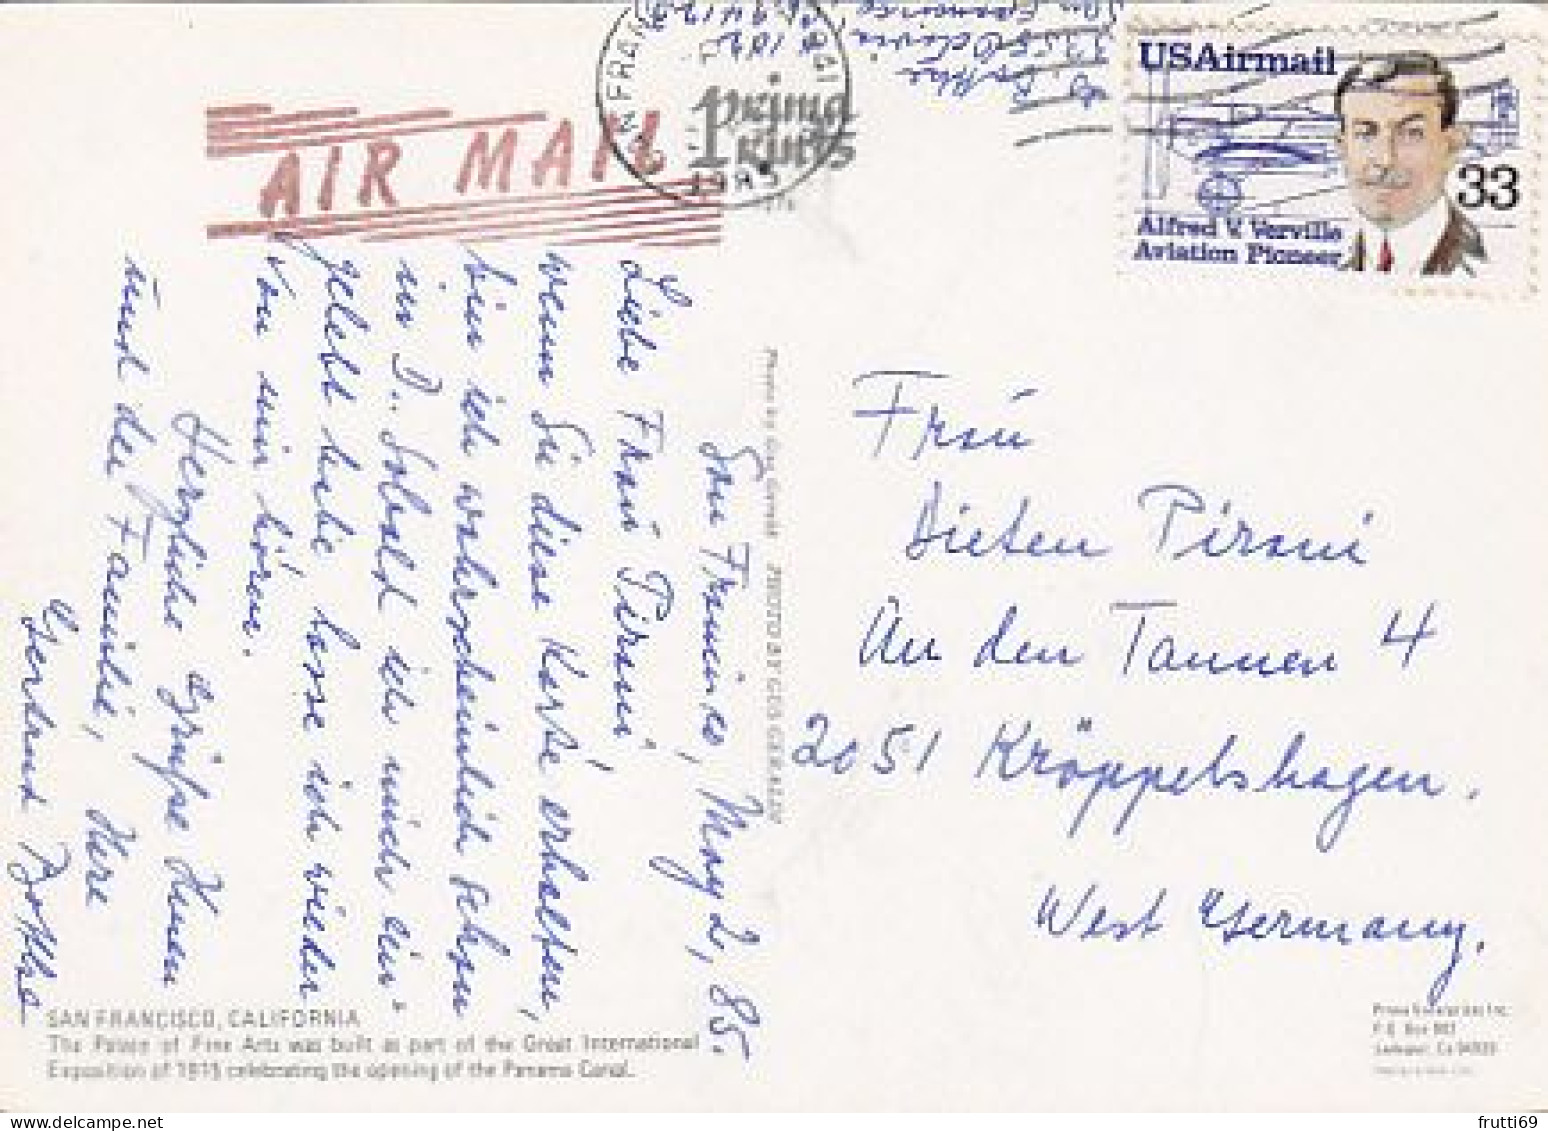 USAirmail
33
Alfred V. Verville
Aviation Pioneer
AIR MAIL
1985
San Francisco, May 2, 85.
Liebe Frau Pirani,
wenn Sie diese Karte erhalten,
bin ich wahrscheinlich schon
in D.. Sobald ich mich ein-
gelebt habe lasse ich wieder
von mir hören.
Herzliche Grüße Ihnen
und der Familie, Ihre
Gertrud Bothke
Frau
Dieten Pirani
An den Tannen 4
2051 Kröppelshagen.
West Germany.
SAN FRANCISCO, CALIFORNIA
The Palace of Fine Arts was built as part of the Great International
Exposition of 1915 celebrating the opening of the Panama Canal.
frutti69